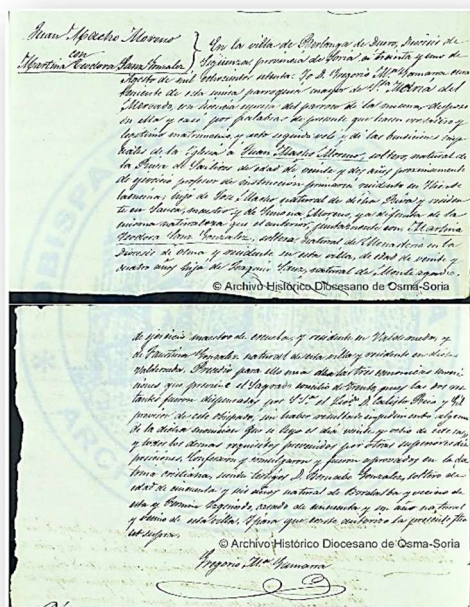 Juan Macho Moreno
con
Martina Teodora Sanz Gonzalez
En la villa de Berlanga de Duero, Diócesis de
Sigüenza, provincia de Soria á treinta y uno de
Agosto de mil ochocientos setenta: Yo D. Gregorio Mª Gamarra
de esta única parroquia mayor de Sta Maria del
Mercado, con licencia del parroco de la misma, desposé
en ella y casé por palabras de presente que hacen verdadero y
legitimo matrimonio, y acto seguido velé y dí las bendiciones
de la Iglesia á Juan Macho Moreno, soltero, natural de
la de edad de veinte y dos años proximamente
de ejercicio profesor de instruccion primaria residente en
hijo de José Macho natural de dicha y residen
te en maestro y de Moreno, ya difunta de la
misma naturaleza que el anterior, juntamente con Martina
Teodora Sanz Gonzalez, soltera natural de en la
Diócesis de Osma y residente en esta villa, de edad de veinte y
cuatro años hija de Sanz, natural de Monteagudo
© Archivo Histórico Diocesano de Osma-Soria
de ejercicio maestro de escuela, y residente en
de Faustina Gonzalez natural de esta villa y residente en dicho
para ello una de las tres canonicas moni
ciones que previene el Sagrado Concilio de Trento, pues las dos res
tantes fueron dispensadas por D. Calisto y
provisor de este obispado, sin haber resultado impedimento alguno
de la dicha monicion que se leyó el dia veinte y ocho de
y todos los demas requisitos, prevenidos por otras superiores dis
posiciones. Confesaron y comulgaron y fueron aprovados en la doc
trina cristiana, siendo testigos D. Bernabe Gonzalez, soltero de
edad de cincuenta y seis años natural de Bordalba y vecino de
esta y Segovia, casado de cincuenta y un años natural
y vecino de esta villa. Y para que conste autorizo la presente fha
ut supra.
© Archivo Histórico Diocesano de Osma-Soria
Gregorio Mª Gamarra